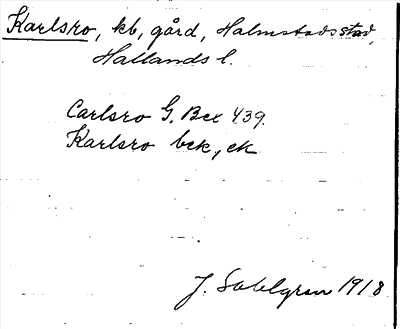 Karlsro, kb, gård, Halmstads stad,
Hallands l.
Carlsro G. Bex 439.
Karlsro bck, ek
J. Sahlgren 1918